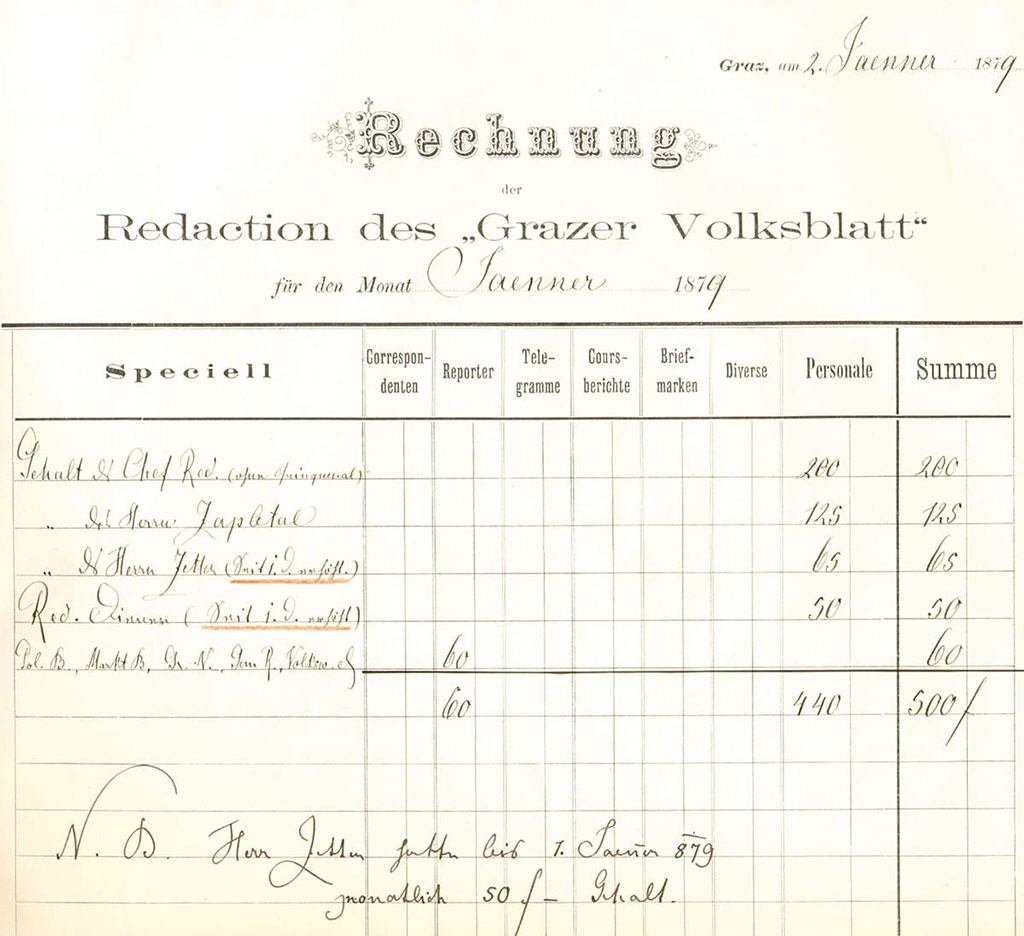 Graz, am 2. Jaenner 1879
Rechnung
der
Redaction des „Grazer Volksblatt“
für den Monat Jaenner 1879
Speciell Correspon-denten Reporter Tele-gramme Cours-berichte Brief-marken Diverse Personale Summe
Gehalt des Chef Red. (ohne Quinquenal) 200 200
„ des Herrn Zapletal 125 125
„ des Herrn Jetter (Seit 1. d. erhöht.) 65 65
Red. Diener (Seit 1. d. erhöht) 50 50
Pol. B., Markt B., Gr. N., Gem R., Volksw. 60 60
60 440 500 f
N. B. Herr Jetter hatte bis 1. Jaenner 879
monatlich 50 f – Gehalt.